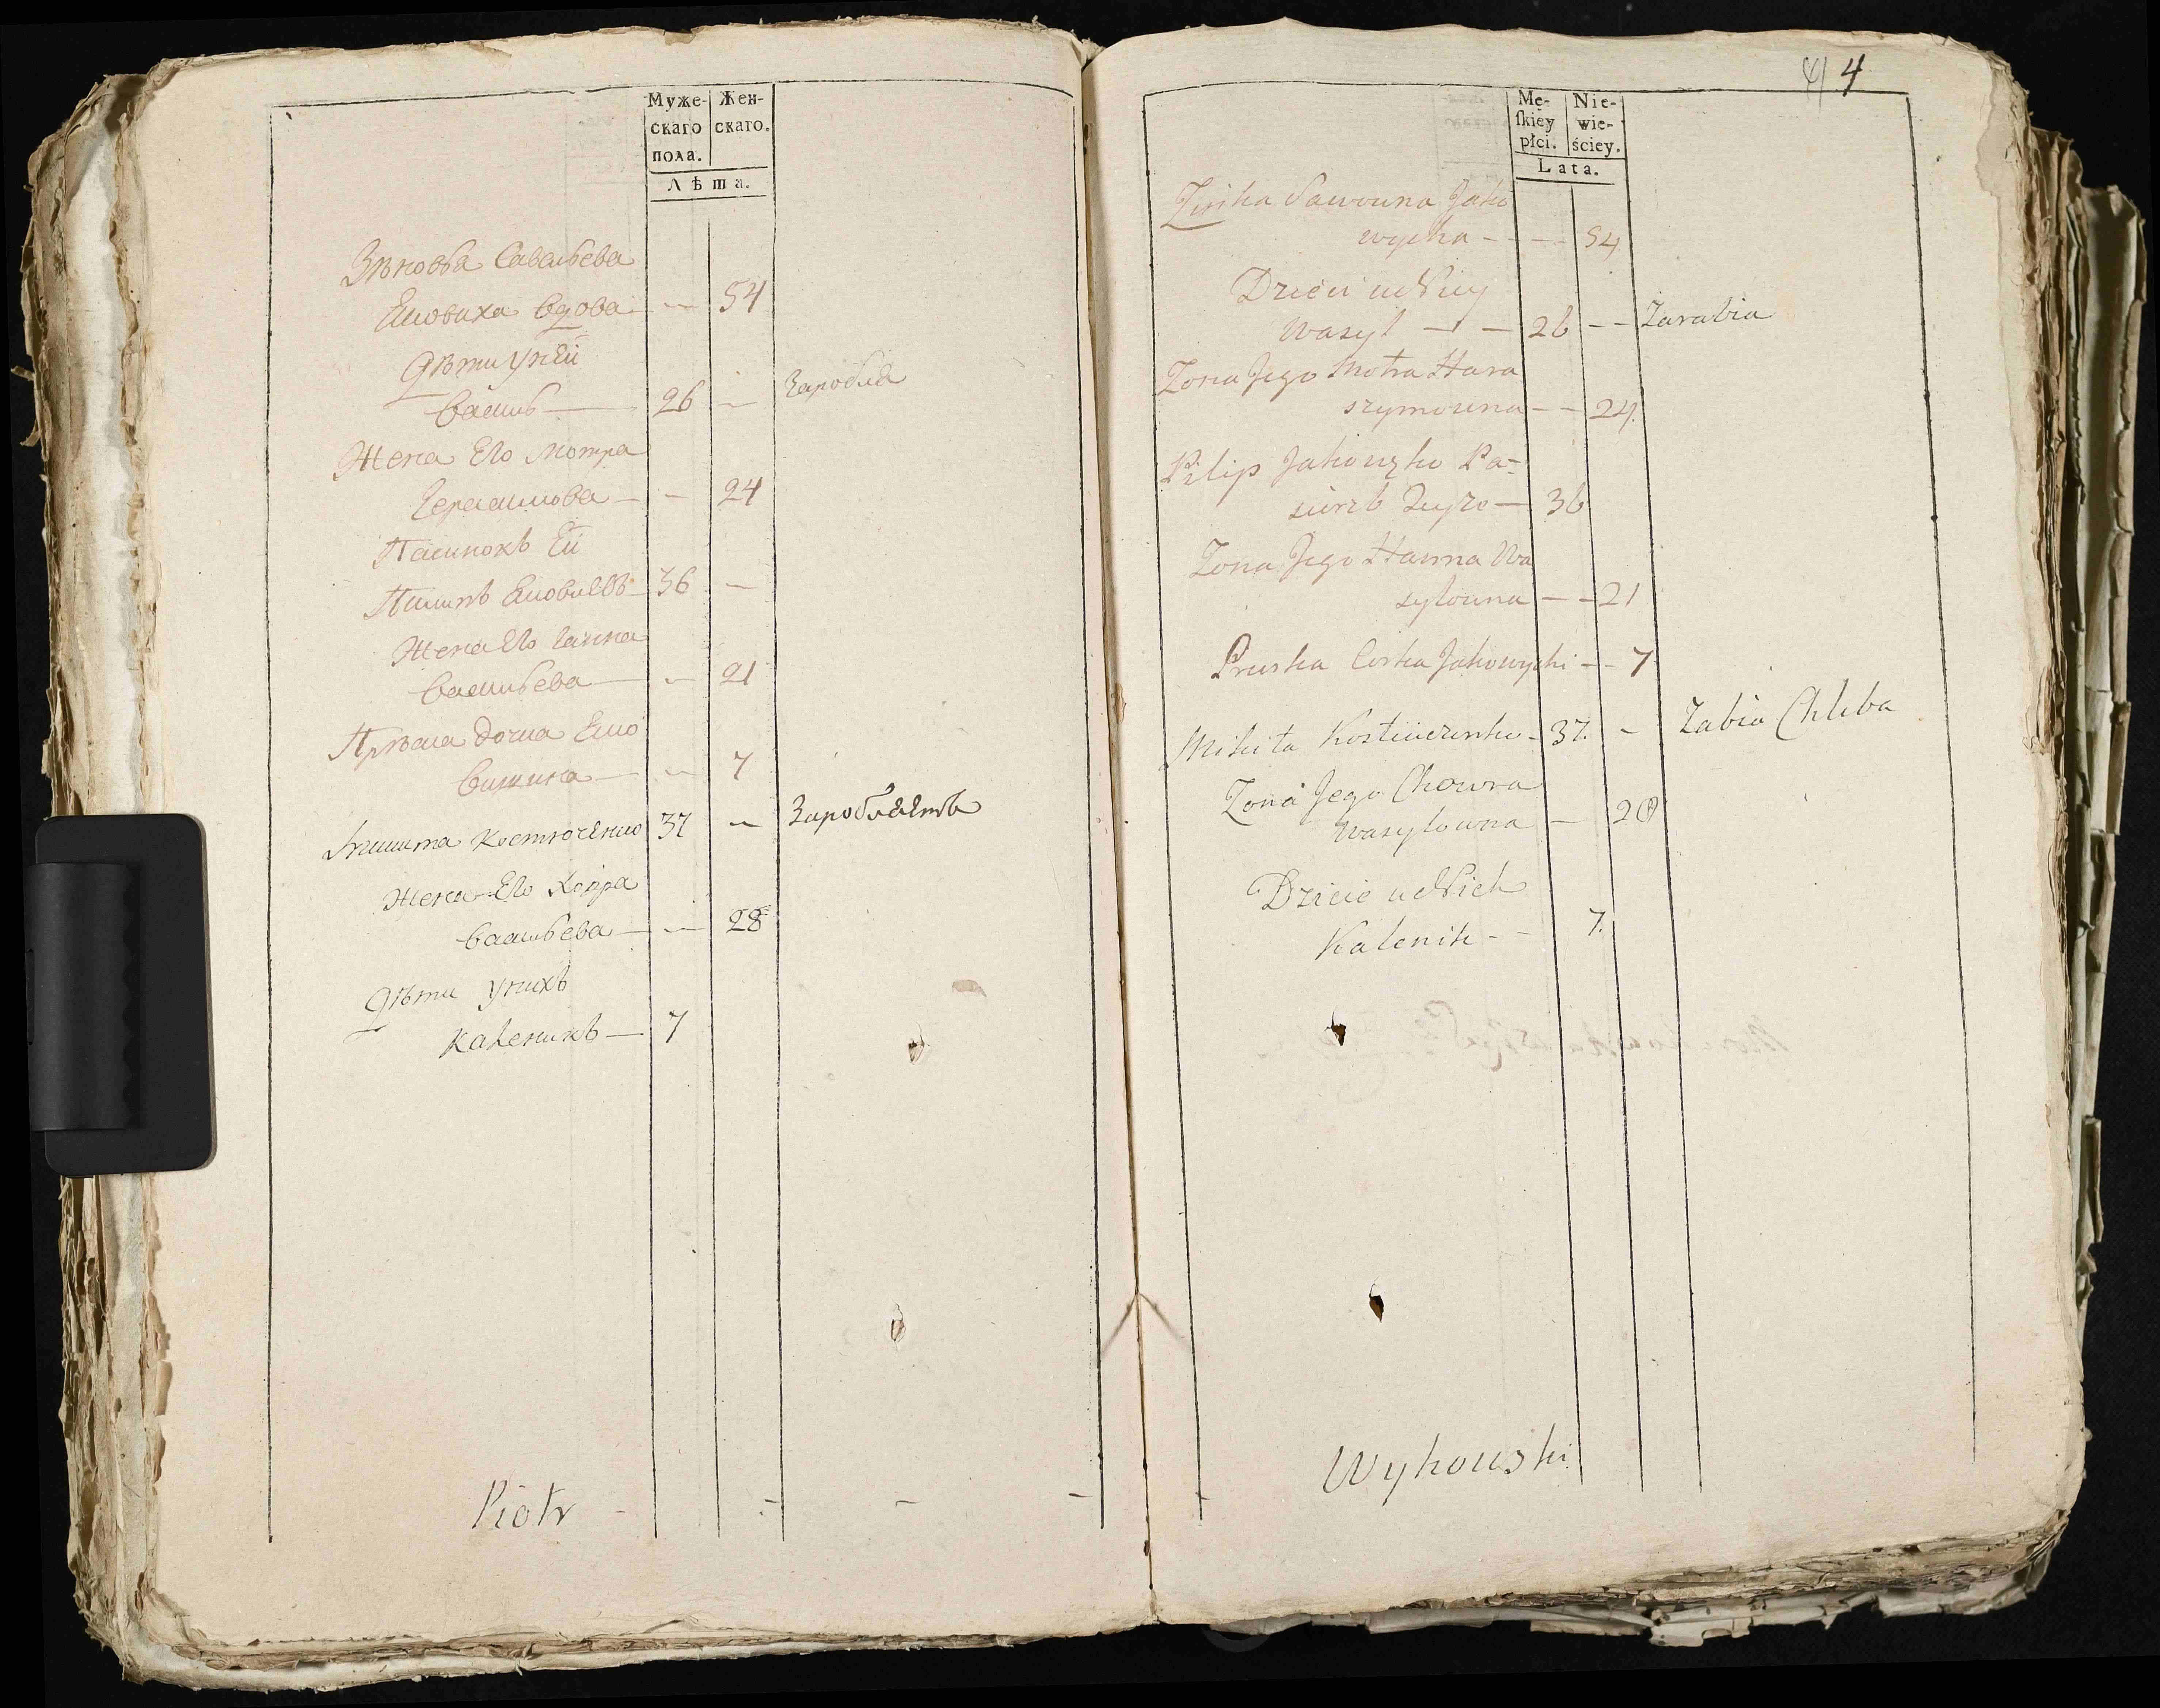 Муже-
скаго
пола.
Жен-
скаго.
Лѣта.
Зѣновѣа Савельева
вдова — 54
Дѣти у ней
Василь — 26 — Заробля
Жена Его Мотра
Герасимова — — 24
Пасинокъ Ей
36 —
Жена Его Ганна
Васильева — — 21
дочка
— — 7
Микита Костюченко 37 — Заробляетъ
Жена Его
Васильева — — 28
Дѣти у нихъ
Каленикъ — 7
Piotr
4
Mę-
ſkiey
płci.
Nie-
wie-
ściey.
Lata.
Zińka Sawowna Jako
wycha - - - 54
Dzieci u Niey
Wasyl — — 26 - - Zarabia
Zona Jego Motra Hara
szymowna - - 24.
Pilip Jakowzko Pa-
36
Zona Jego Hanna Wa
sylowna — - 21
Pruska Corka Jakowychi - - 7
Mikita Kostiuczenko - 37. - Zabia Chleba
Zona Jego Chowra
Wasylowna — 28
Dziecie u Nich
Kalenik - - 7.
Wykowski